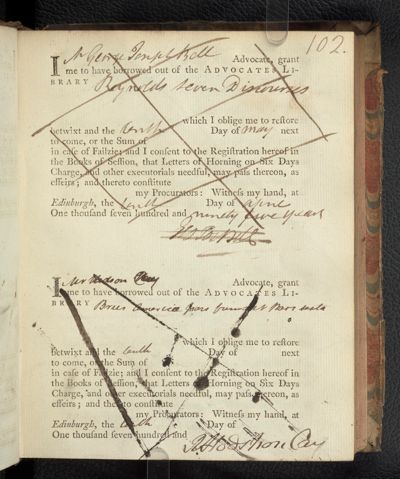 102.
I Mr George Joseph Bell Advocate, grant
me to have borrowed out of the ADVOCATES LI-
BRARY Reynolds seven Discourses
which I oblige me to restore
betwixt and the tenth Day of May next
to come, or the Sum of
in case of Failzie; and I consent to the Registration hereof in
the Books of Session, that Letters of Horning on Six Days
Charge, and other executorials needful, may pass thereon, as
effeirs; and thereto constitute
my Procurators: Witness my hand, at
Edinburgh, the tenth Day of April
One thousand seven hundred and ninety five years
I Mr Hodson Cay Advocate, grant
me to have borrowed out of the ADVOCATES LI-
BRARY
which I oblige me to restore
betwixt and the tenth Day of next
to come, or the Sum of
in case of Failzie; and I consent to the Registration hereof in
the Books of Session, that Letters of Horning on Six Days
Charge, and other executorials needful, may pass thereon, as
effeirs; and thereto constitute
my Procurators: Witness my hand, at
Edinburgh, the tenth Day of
One thousand seven hundred and
Rt Hodshon Cay